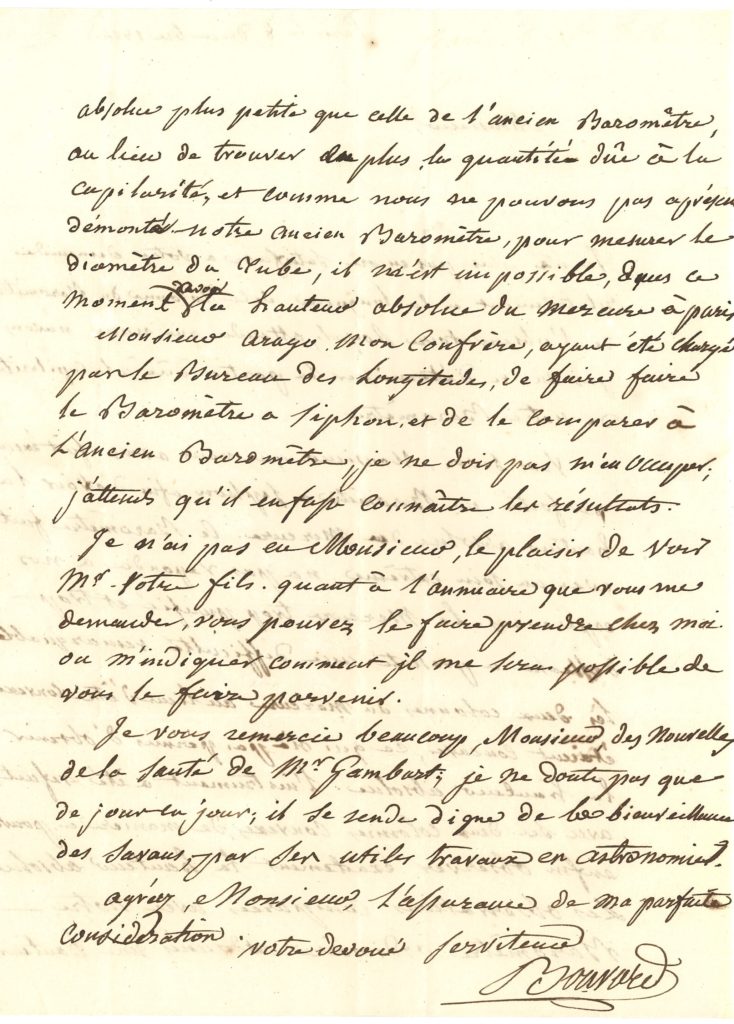 absolue plus petite que celle de l'ancien Baromètre,
au lieu de trouver en plus, la quantité dûe à la
capilarité, et comme nous ne pouvons pas aprésent
démonté notre ancien Baromètre, pour mesurer le
diamètre du Tube, il m'est impossible, dans ce
moment davoir la hauteur absolue du mercure à paris
Monsieur Arago, mon Confrère, ayant été chargé
par le Bureau des Longitudes, de faire faire
le Baromètre a Siphon, et de le comparer à
L'ancien Baromètre, je ne dois pas m'en occuper;
j'attends qu'il en fasse connaître les résultats.
Je n'ai pas eu Monsieur, le plaisir de voir
Mr. Votre fils. quant à l'annuaire que vous me
demandé, vous pouvez le faire prendre chez moi
ou m'indiquer comment il me sera possible de
vous le faire parvenir.
Je vous remercie beaucoup, Monsieur, des Nouvelles
de la Santé de Mr. Gambart; je ne doute pas que
de jour en jour, il se rende digne de la bienveillance
des Savans, par ses utiles travaux en astronomie.
agréez, Monsieur, l'assurance de ma parfaite
Considération. votre devoué Serviteur
Bouvard